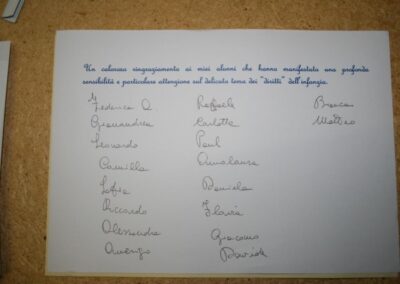 Un caloroso ringraziamento ai miei alunni che hanno manifestato una profonda
sensibilità e particolare attenzione sul delicato tema dei "diritti" dell'infanzia.
Federica Q. Raffaele Bianca
Gianandrea Carlotta Matteo
Leonardo Paul
Camilla Annalaura
Sofia Daniela
Riccardo Flavia
Alessandra Giacomo
Davide